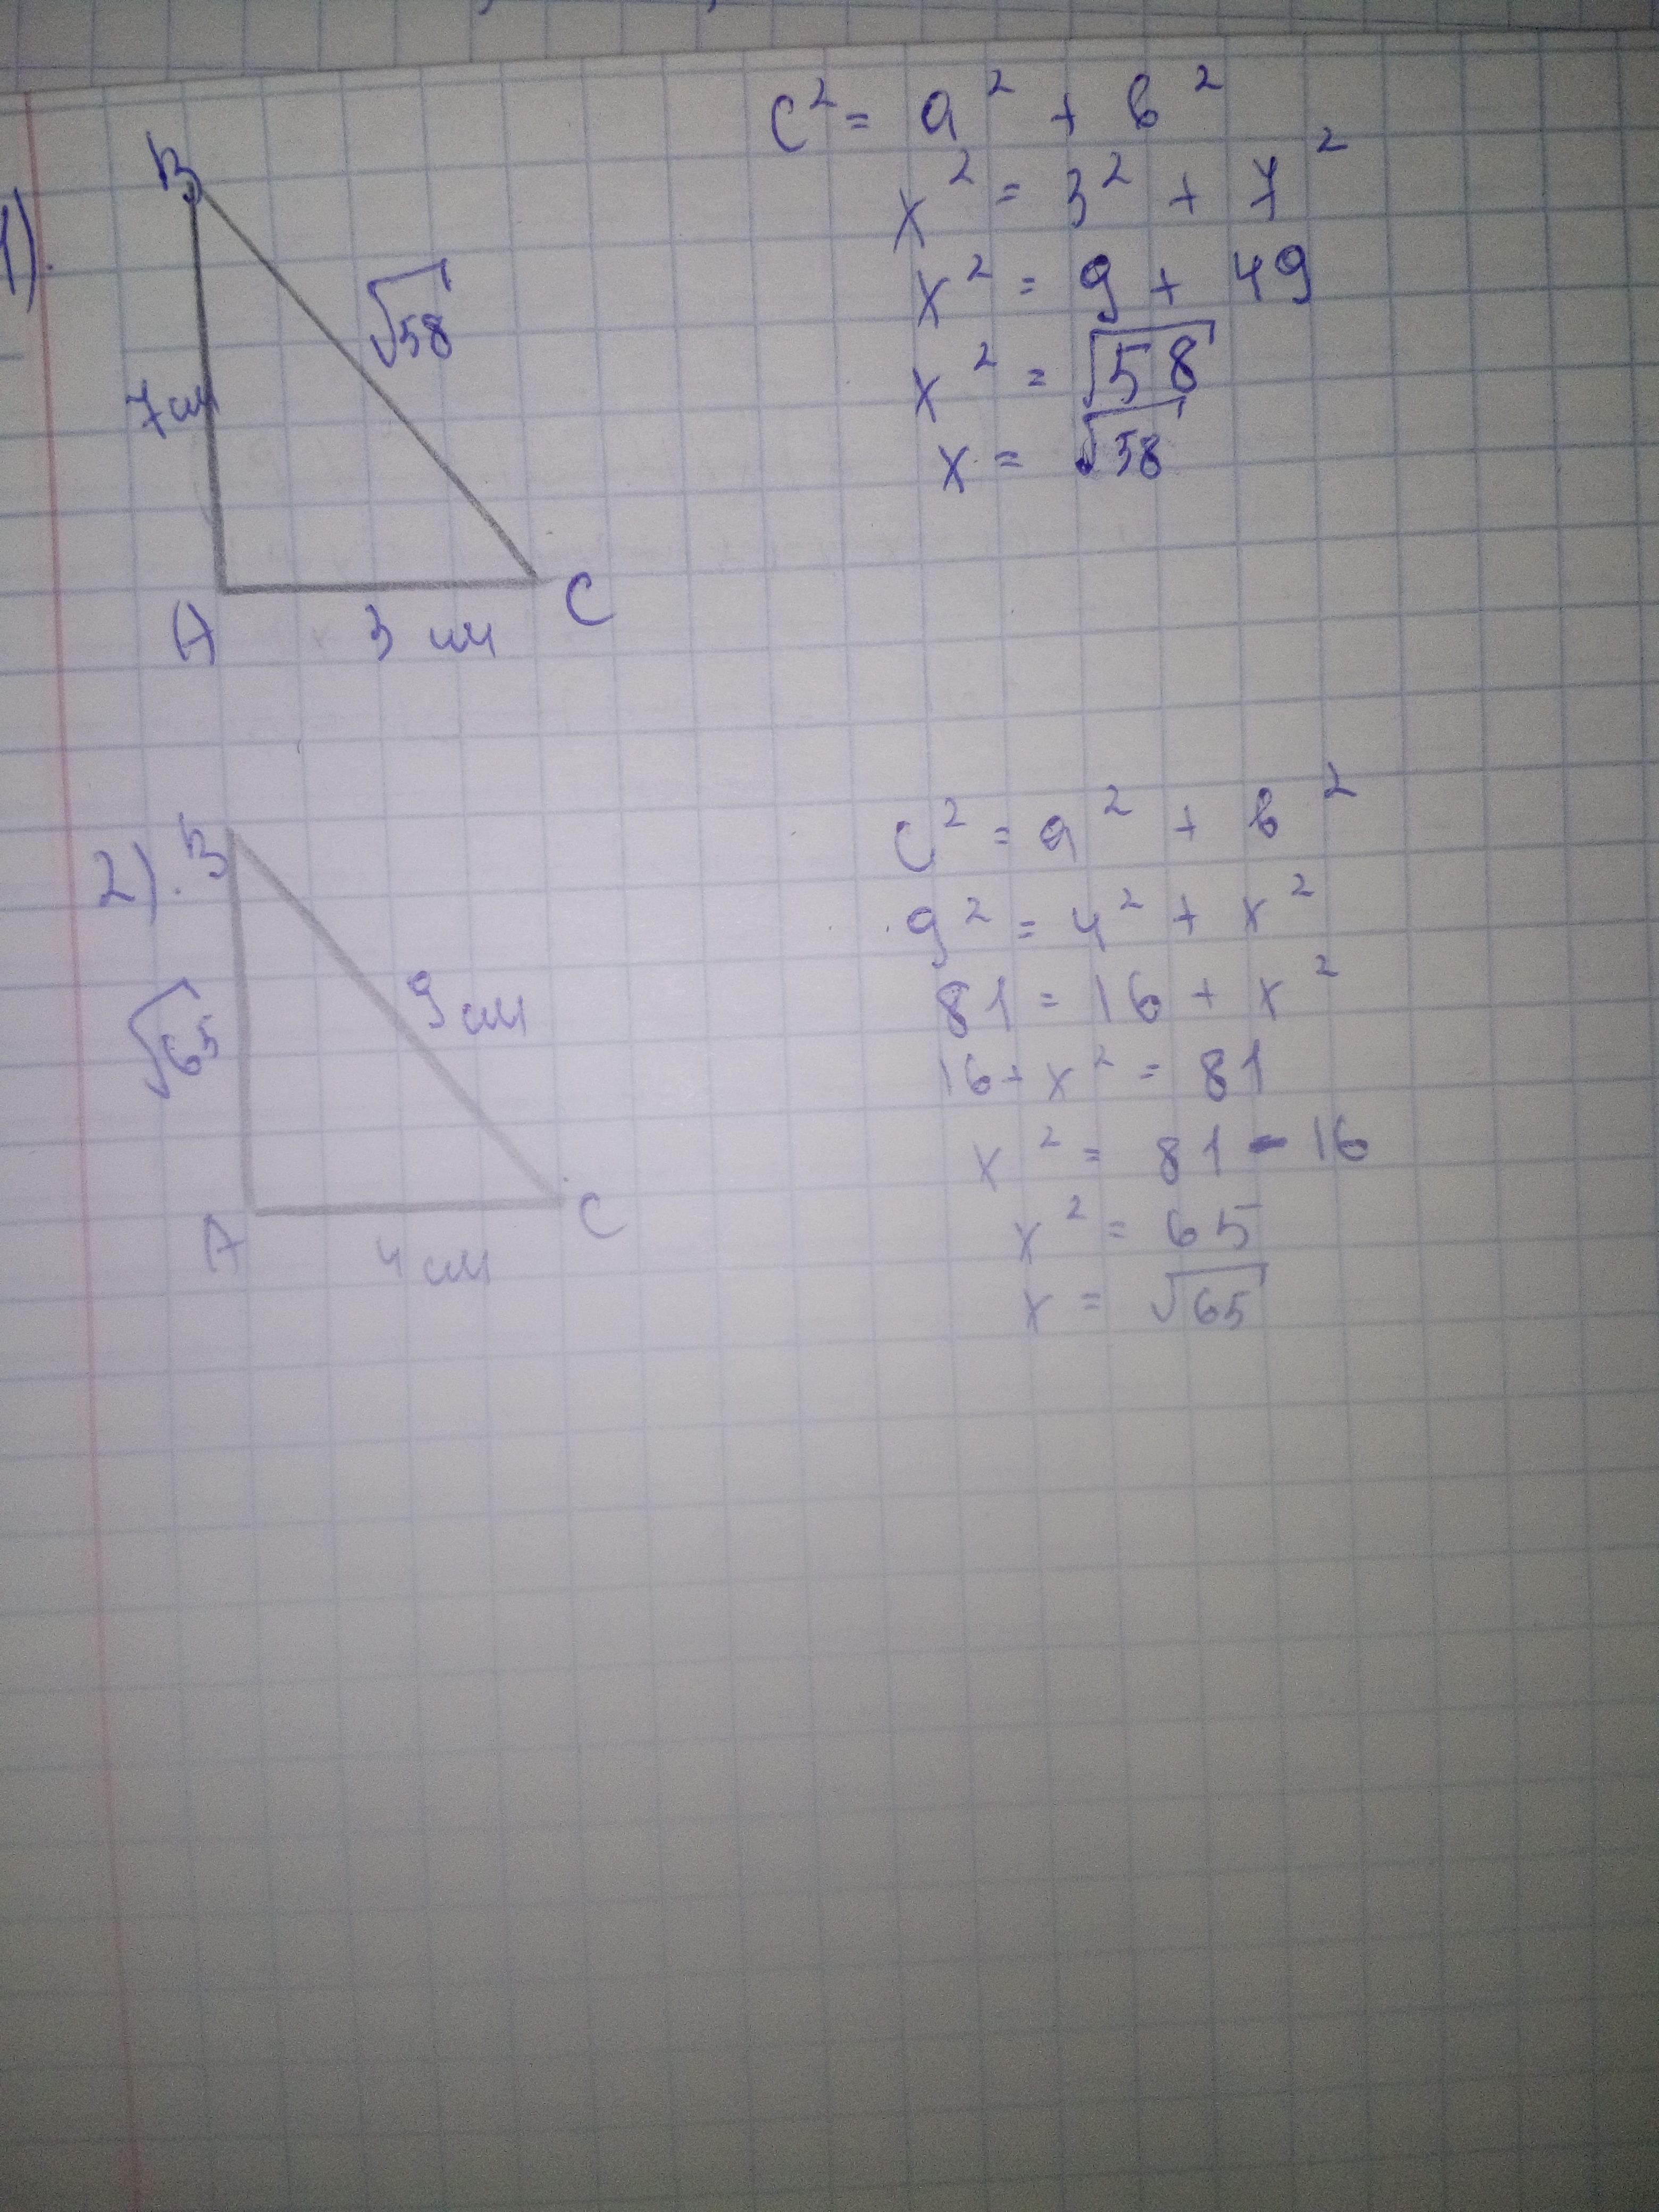 1).
B
√58
7 см
A
3 см
C
c² = a² + b²
x² = 3² + 7²
x² = 9 + 49
x² = √58
x = √58
2).
B
√65
9 см
A
4 см
C
c² = a² + b²
9² = 4² + x²
81 = 16 + x²
16 + x² = 81
x² = 81 - 16
x² = 65
x = √65